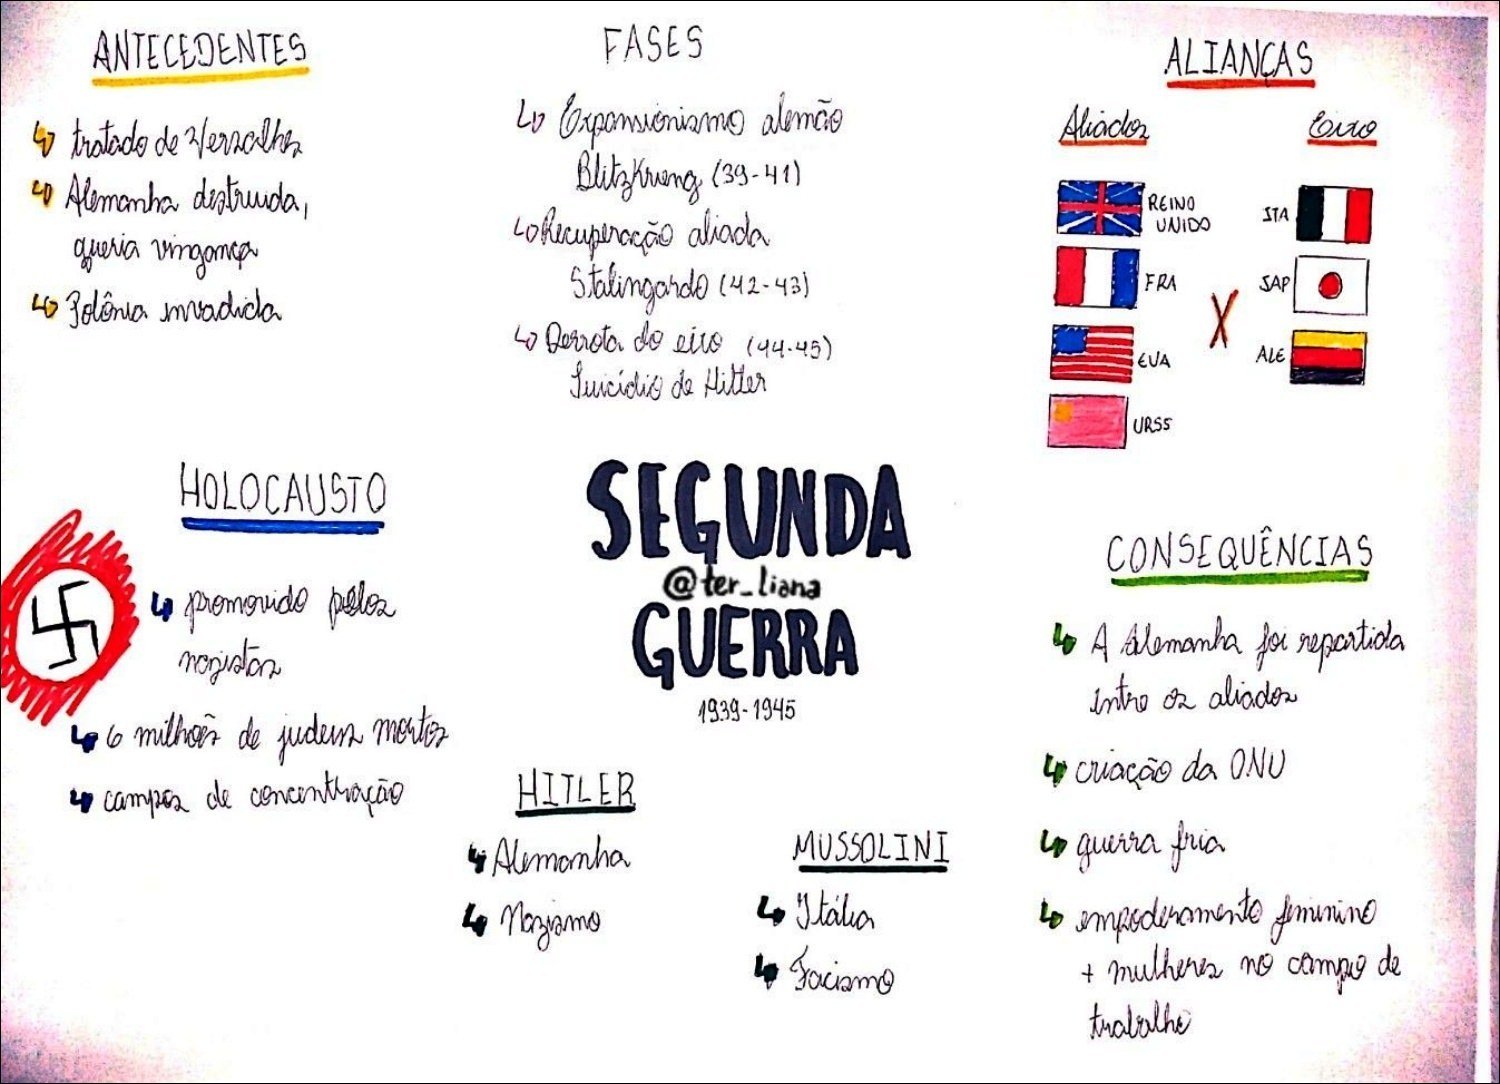 ANTECEDENTES
tratado de Versalhes
Alemanha destruida,
queria vingança
Polônia invadida
FASES
Expansionismo alemão
Blitzkrieng (39-41)
Recuperação aliada
Stalingardo (42-43)
Derrota do eixo (44-45)
Suicídio de Hitler
ALIANÇAS
Aliados
Eixo
REINO
UNIDO
FRA
EUA
URSS
X
ITA
JAP
ALE
HOLOCAUSTO
promovido pelos
nazistas
6 milhões de judeus mortos
campos de concentração
SEGUNDA
@ter_liana
GUERRA
1939-1945
HITLER
Alemanha
Nazismo
MUSSOLINI
Itália
Facismo
CONSEQUÊNCIAS
A Alemanha foi repartida
entre os aliados
criação da ONU
guerra fria
empoderamento feminino
+ mulheres no campo de
trabalho